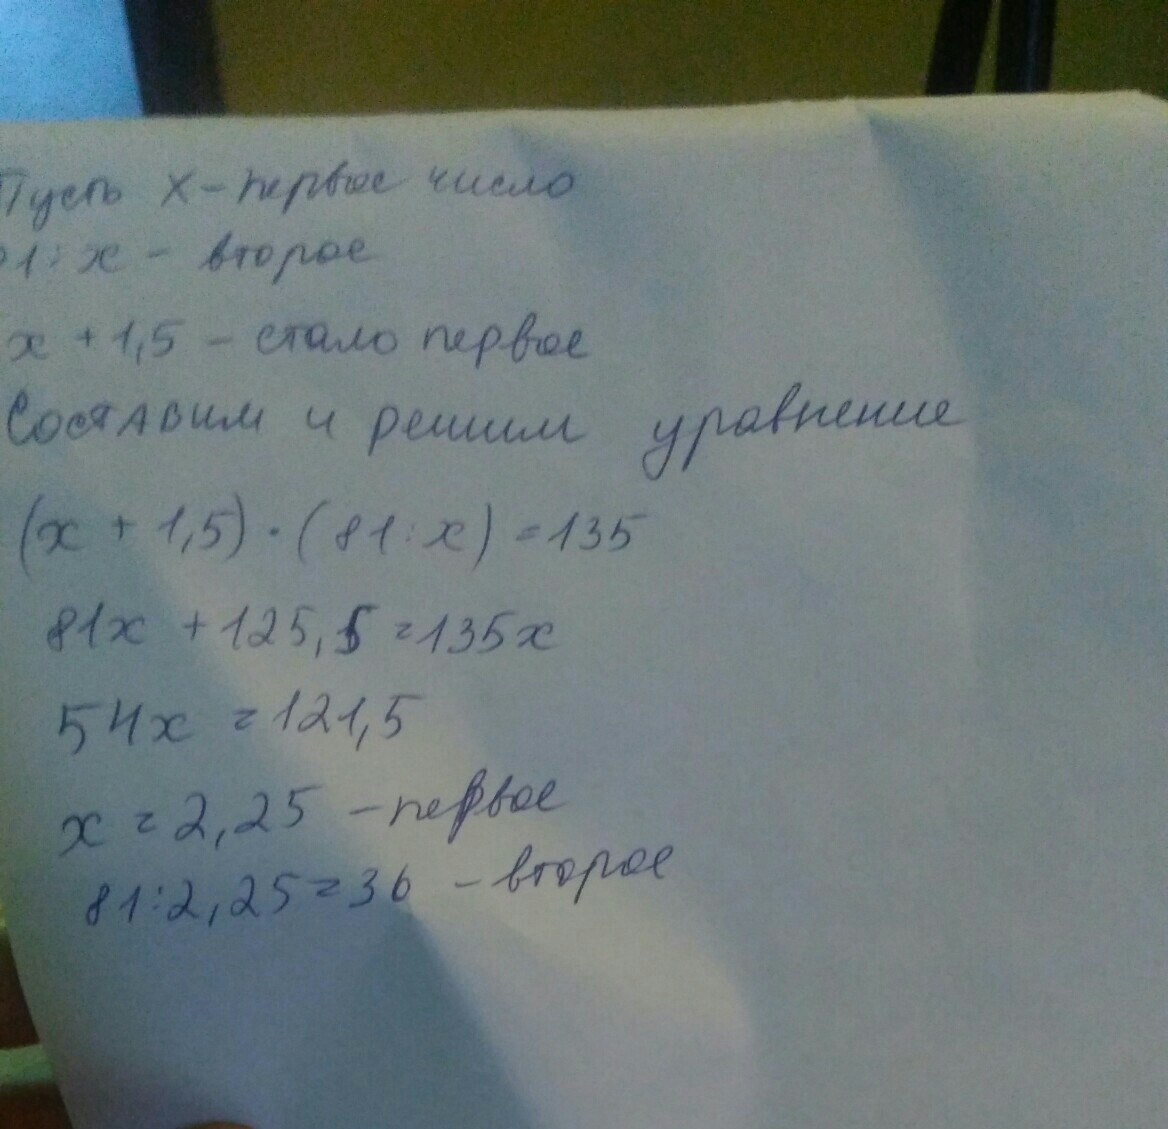 Пусть х – первое число
81:х – второе
х + 1,5 – стало первое
Составим и решим уравнение
(х + 1,5) · (81:х) = 135
81х + 125,5 = 135х
54х = 121,5
х = 2,25 – первое
81:2,25 = 36 – второе